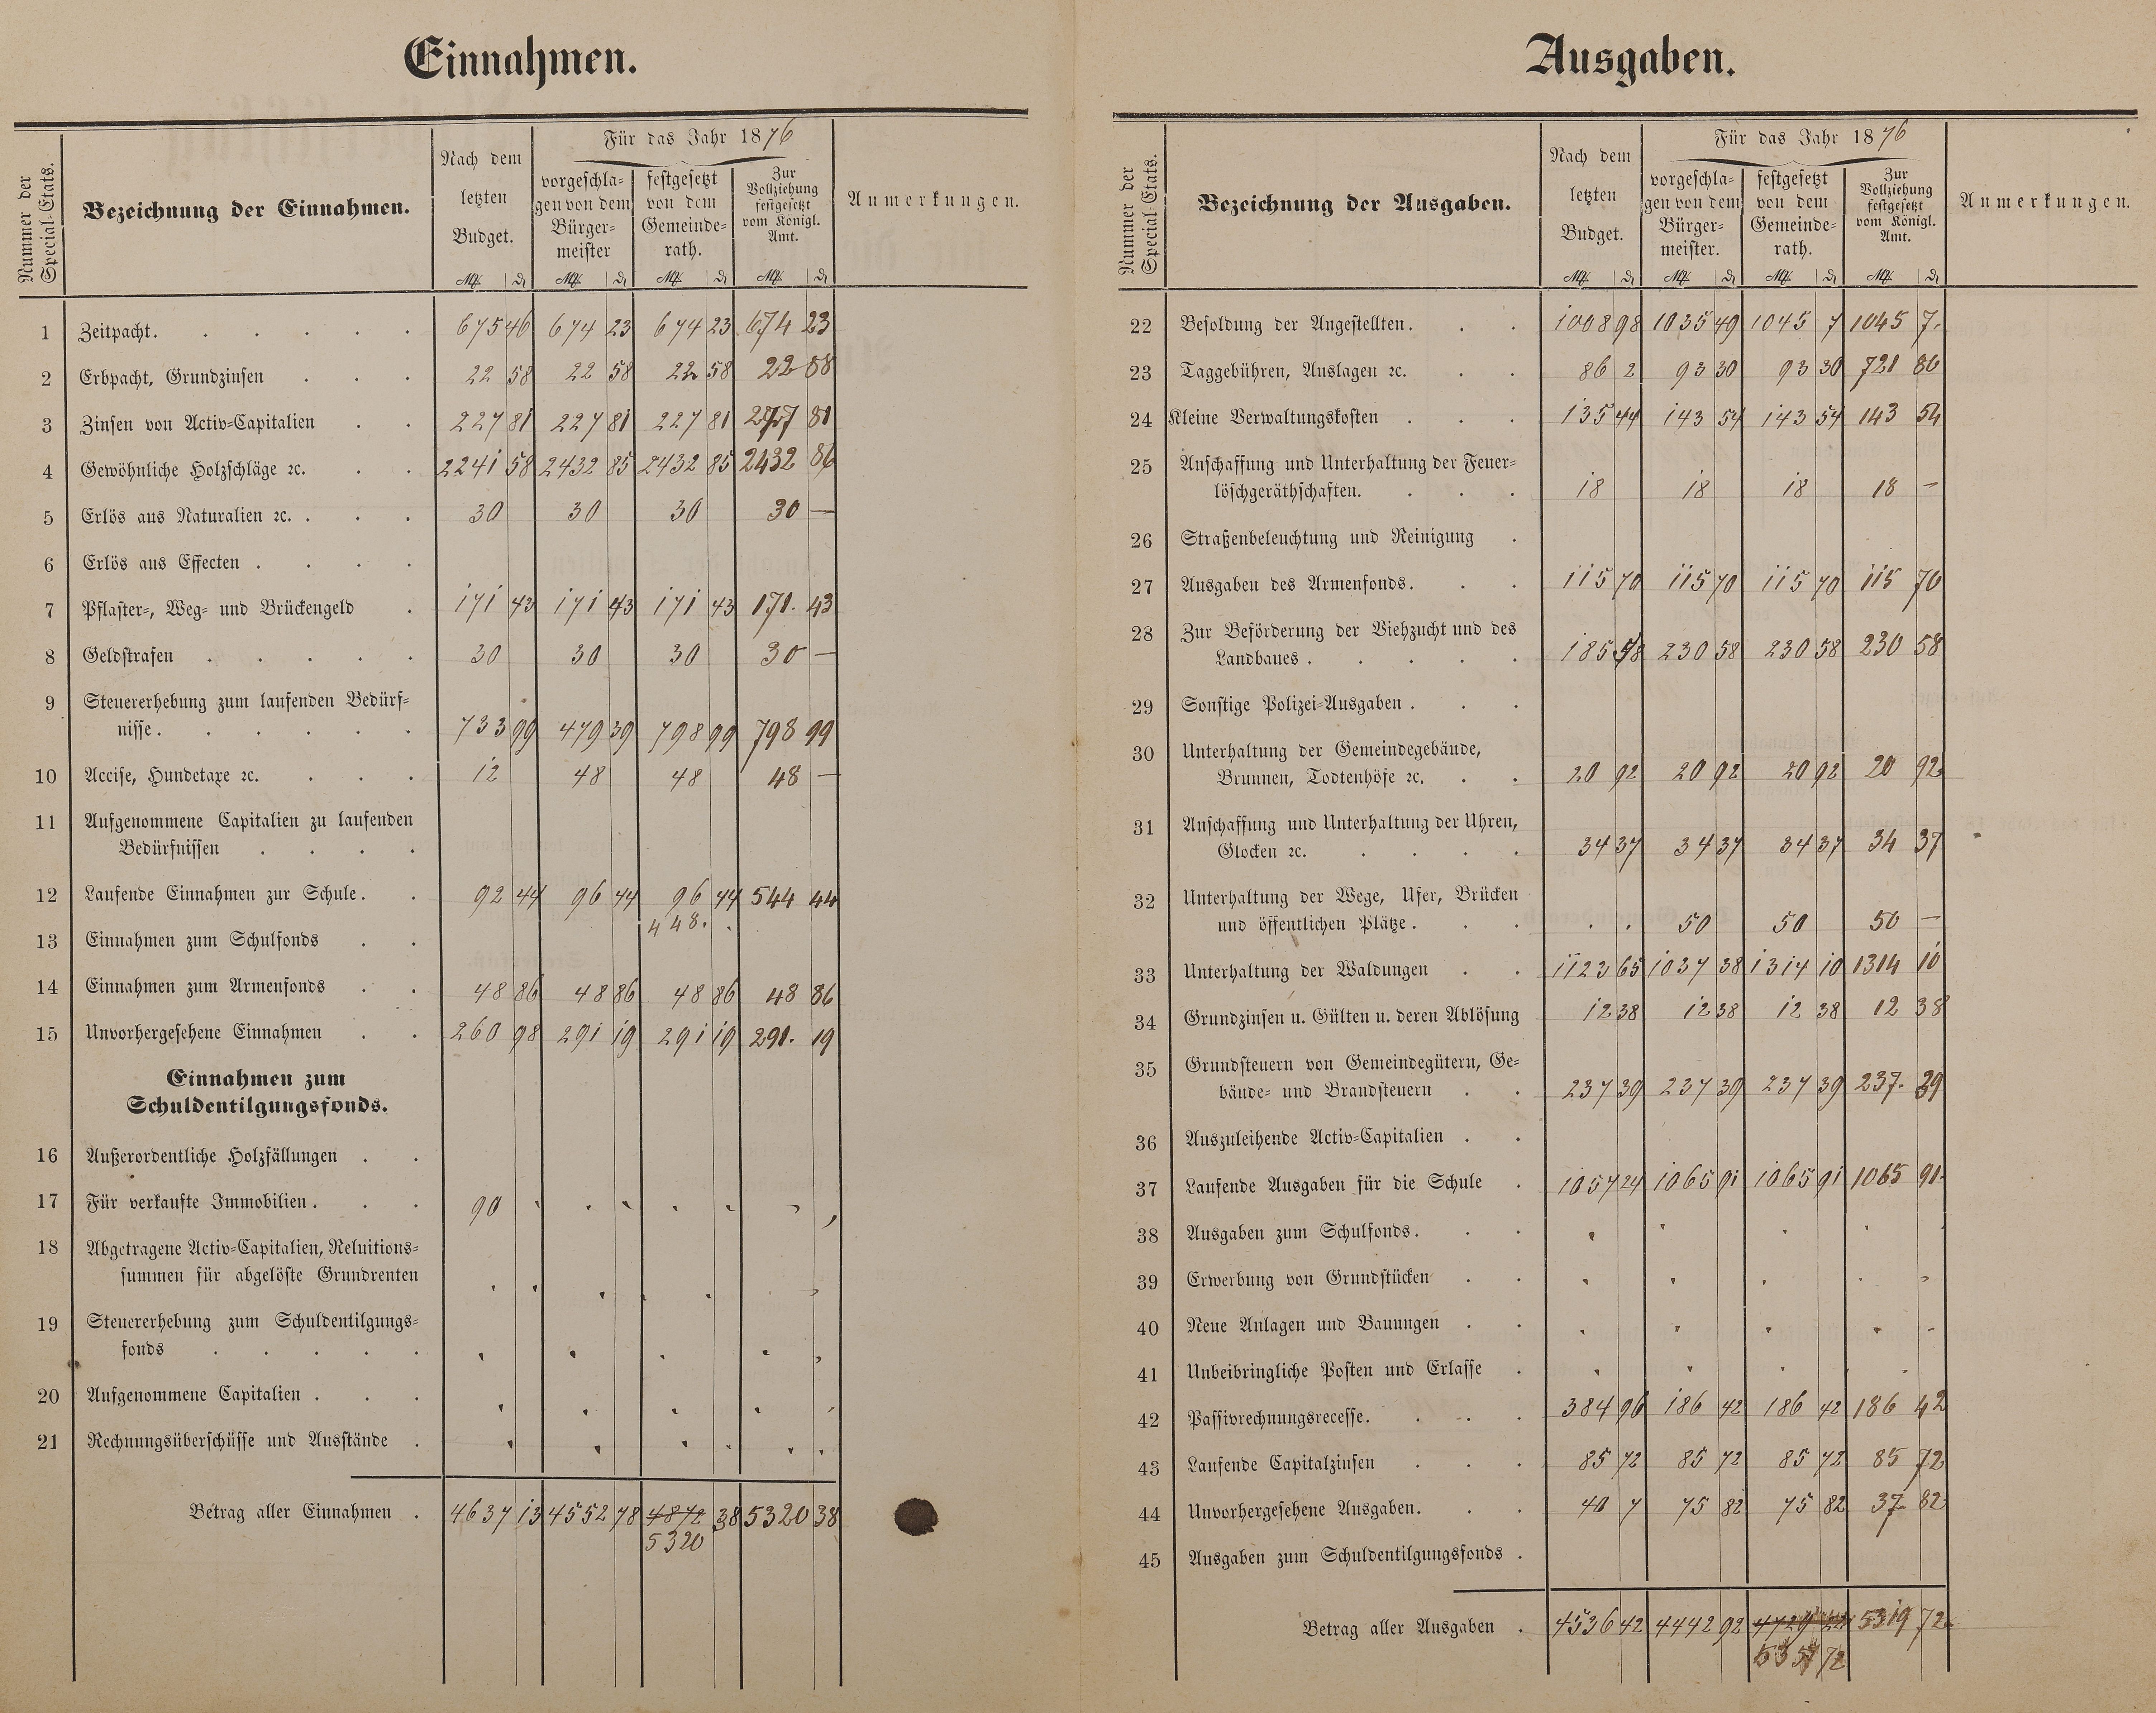 Einnahmen.
Nummer der Special-Etats.
Bezeichnung der Einnahmen.
Nach dem letzten Budget.
Für das Jahr 1876
vorgeschlagen von dem Bürgermeister
festgesetzt von dem Gemeinderath.
Zur Vollziehung festgesetzt vom Königl. Amt.
Anmerkungen.
1 Zeitpacht. 675 46 674 23 674 23 674 23
2 Erbpacht, Grundzinsen 22 58 22 58 22 58 22 58
3 Zinsen von Activ-Capitalien 227 81 227 81 227 81 227 81
4 Gewöhnliche Holzschläge ꝛc. 2241 58 2432 85 2432 85 2432 86
5 Erlös aus Naturalien ꝛc. 30 30 30 30 —
6 Erlös aus Effecten
7 Pflaster-, Weg- und Brückengeld 171 43 171 43 171 43 171. 43
8 Geldstrafen 30 30 30 30 —
9 Steuererhebung zum laufenden Bedürf-
nisse. 733 99 479 39 798 99 798 99
10 Accise, Hundetaxe ꝛc. 12 48 48 48 —
11 Aufgenommene Capitalien zu laufenden
Bedürfnissen
12 Laufende Einnahmen zur Schule. 92 44 96 44 96 44 544 44
448.
13 Einnahmen zum Schulfonds
14 Einnahmen zum Armenfonds 48 86 48 86 48 86 48 86
15 Unvorhergesehene Einnahmen 260 98 291 19 291 19 291. 19
Einnahmen zum
Schuldentilgungsfonds.
16 Außerordentliche Holzfällungen
17 Für verkaufte Immobilien. 90
18 Abgetragene Activ-Capitalien, Reluitions-
summen für abgelöste Grundrenten
19 Steuererhebung zum Schuldentilgungs-
fonds
20 Aufgenommene Capitalien
21 Rechnungsüberschüsse und Ausstände
Betrag aller Einnahmen 4637 13 4552 78 4872 38 5320 38
5320
Ausgaben.
Nummer der Special-Etats.
Bezeichnung der Ausgaben.
Nach dem letzten Budget.
Für das Jahr 1876
vorgeschlagen von dem Bürgermeister.
festgesetzt von dem Gemeinderath.
Zur Vollziehung festgesetzt vom Königl. Amt.
Anmerkungen.
22 Besoldung der Angestellten. 1008 98 1035 49 1045 7 1045 7.
23 Taggebühren, Auslagen ꝛc. 86 2 93 30 93 30 721 80
24 Kleine Verwaltungskosten 135 44 143 54 143 54 143 54
25 Anschaffung und Unterhaltung der Feuer-
löschgeräthschaften. 18 18 18 18 —
26 Straßenbeleuchtung und Reinigung
27 Ausgaben des Armenfonds. 115 70 115 70 115 70 115 70
28 Zur Beförderung der Viehzucht und des
Landbaues. 185 58 230 58 230 58 230 58
29 Sonstige Polizei-Ausgaben.
30 Unterhaltung der Gemeindegebäude,
Brunnen, Todtenhöfe ꝛc. 20 92 20 92 20 92 20 92
31 Anschaffung und Unterhaltung der Uhren,
Glocken ꝛc. 34 37 34 37 34 37 34 37
32 Unterhaltung der Wege, Ufer, Brücken
und öffentlichen Plätze. 50 50 50 —
33 Unterhaltung der Waldungen 1123 65 1037 38 1314 10 1314 10
34 Grundzinsen u. Gülten u. deren Ablösung 12 38 12 38 12 38 12 38
35 Grundsteuern von Gemeindegütern, Ge-
bäude- und Brandsteuern 237 39 237 39 237 39 237. 39
36 Auszuleihende Activ-Capitalien
37 Laufende Ausgaben für die Schule 1057 24 1065 91 1065 91 1065 91.
38 Ausgaben zum Schulfonds.
39 Erwerbung von Grundstücken
40 Neue Anlagen und Bauungen
41 Unbeibringliche Posten und Erlasse
42 Passivrechnungsrecesse. 384 96 186 42 186 42 186 42
43 Laufende Capitalzinsen 85 72 85 72 85 72 85 72
44 Unvorhergesehene Ausgaben. 40 7 75 82 75 82 37. 82
45 Ausgaben zum Schuldentilgungsfonds.
Betrag aller Ausgaben 4536 42 4442 92 5319 72